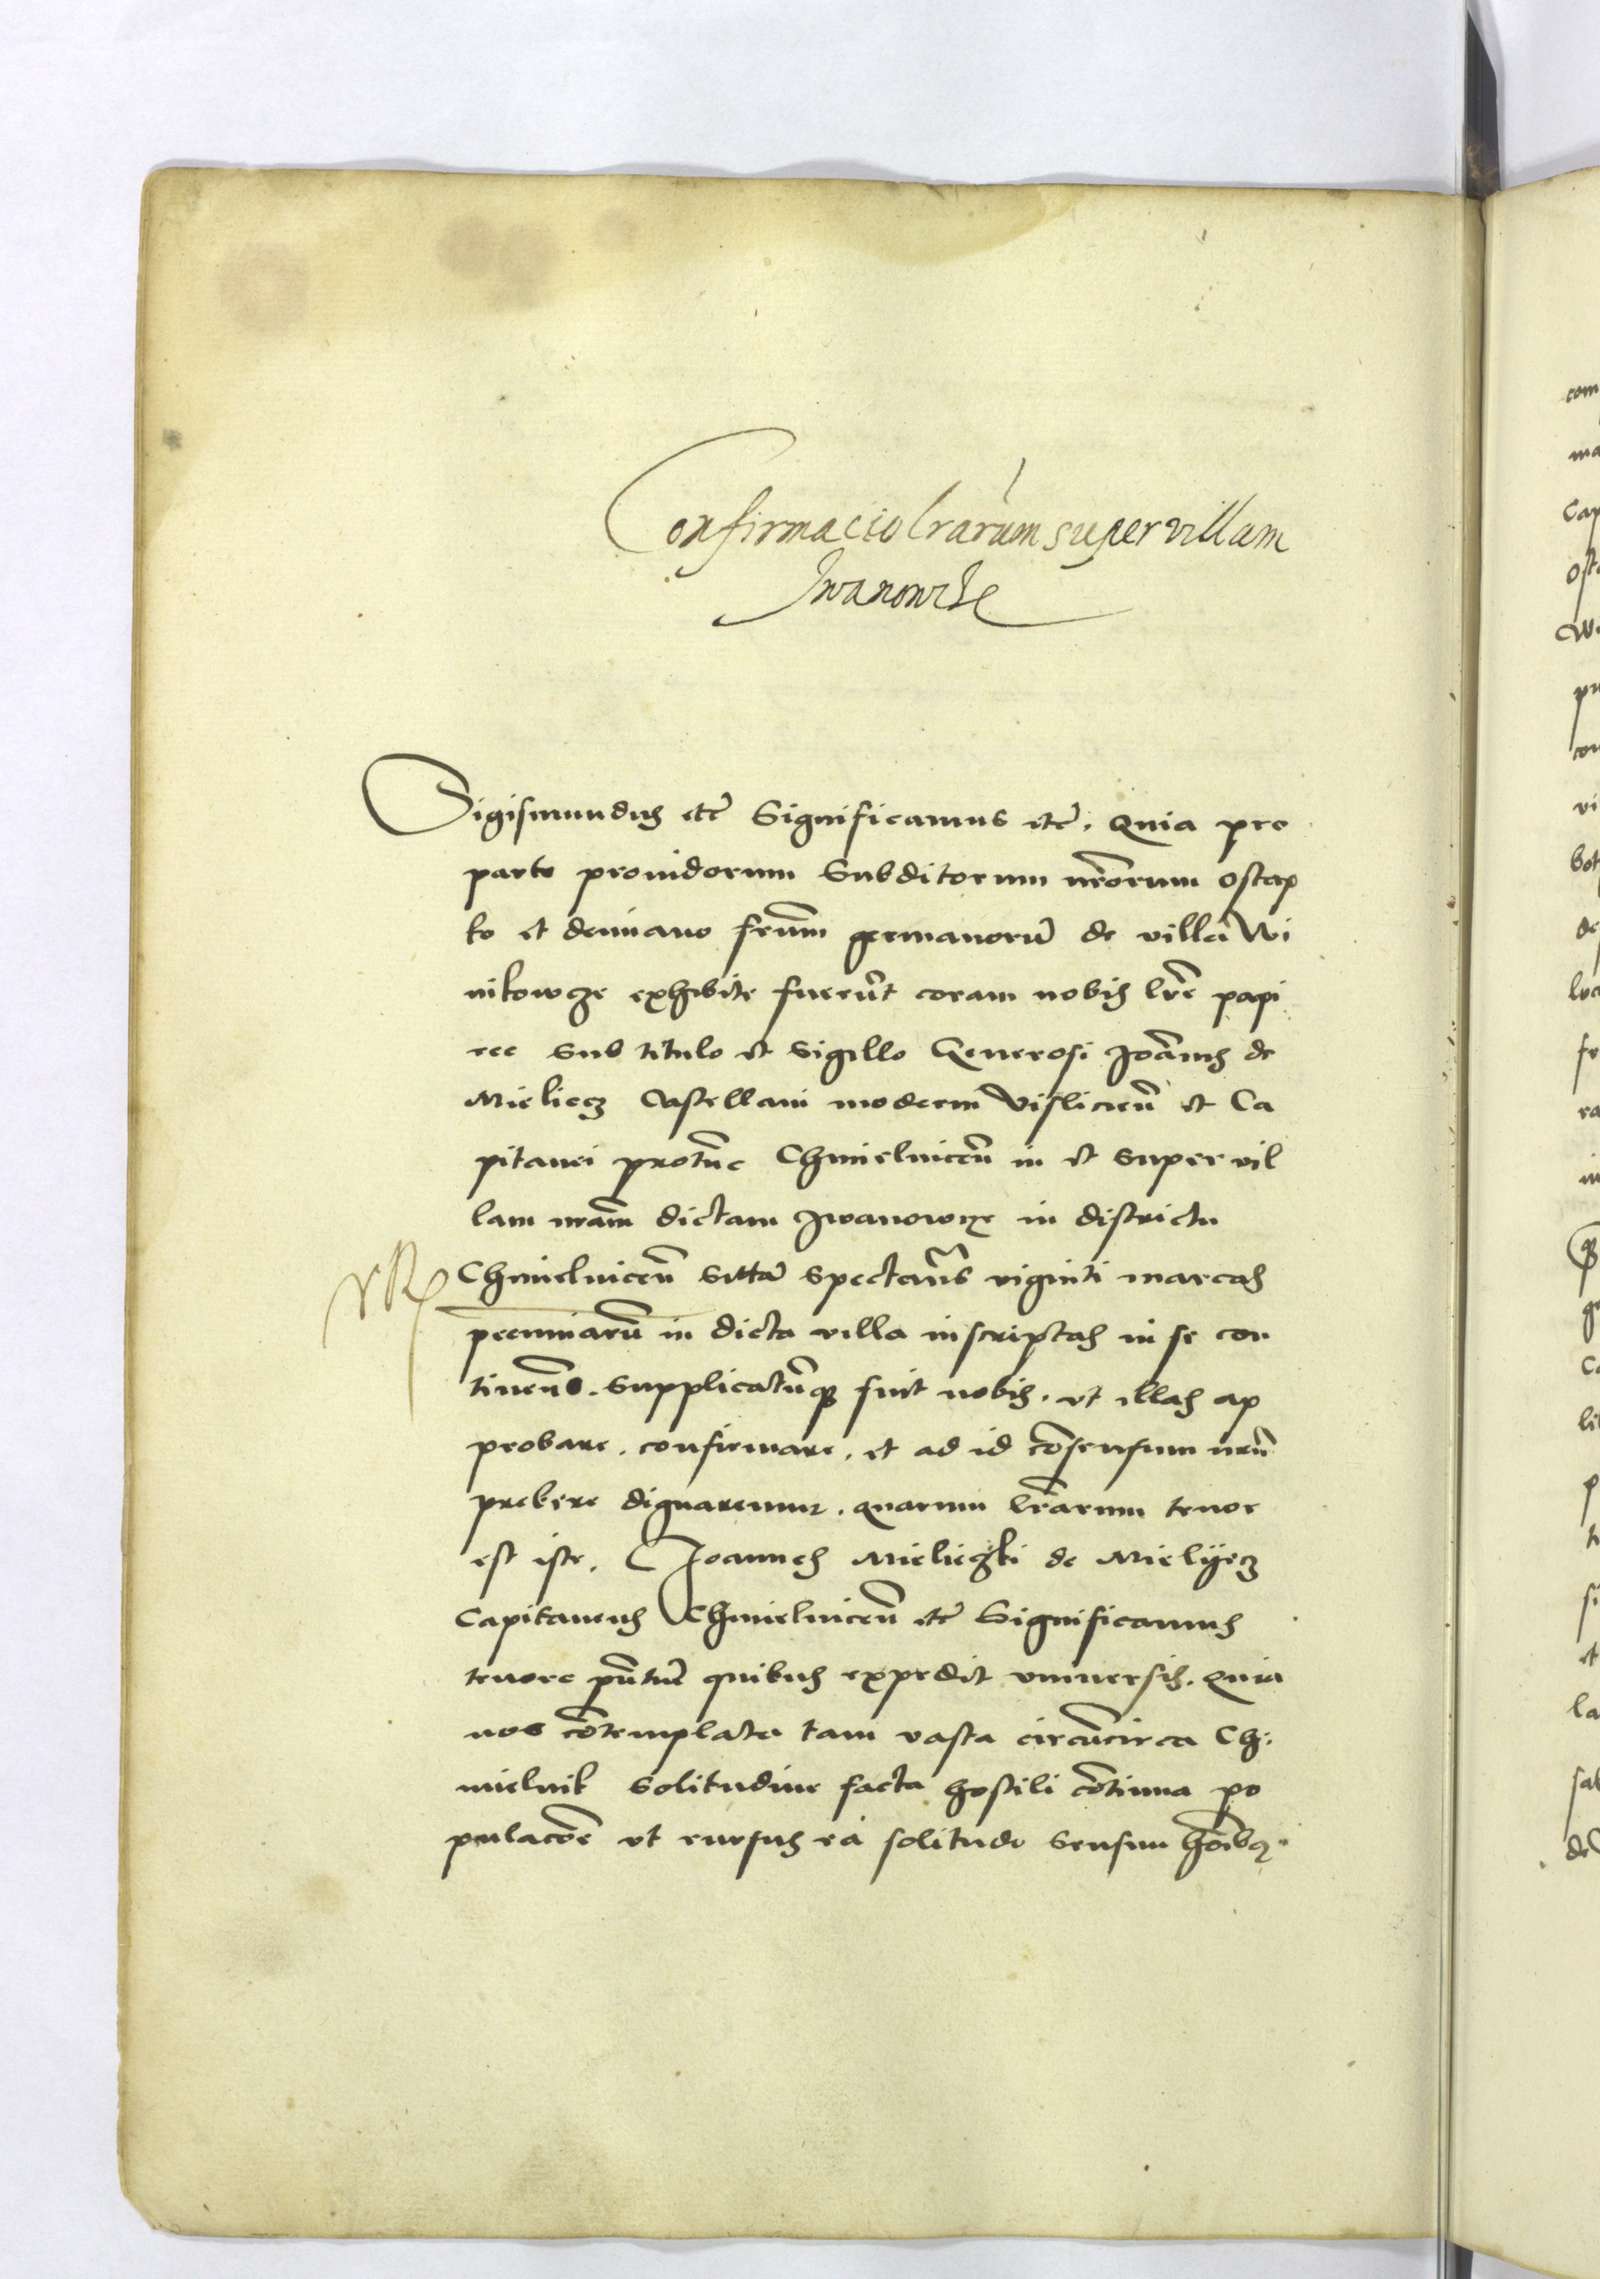 Confirmacio lrarum super villam
Iwanowcze
Sigismundus etc̃ Significamus etc̃. Quia pro
parte prouidorum Subditorum nr̃orum Ostap
ko et demiano frũm germanorũ de villa Wi
nikowcze exhibite fuerũt coram nobis lr̃e papi
ree sub titulo et sigillo Generosi Joãnis de
Mieliecz Castellani moderni Visliciẽn et Ca
pitanei protũc Chmielnicẽn in et super vil
lam nrãm dictam Iwanowcze in districtu
Chmielnicẽn sittã spectañs viginti marcas
pecuniarũ in dicta villa inscriptas in se con
tineñs. Supplicatũq̃ fuit nobis. vt illas ap
probare. confirmare. et ad id cõsensum nrũ
prebere dignaremur. quarum lr̃arum tenor
est iste. Joannes Mielieczki de Mielijecz
Capitaneus Chmielnicẽn etc̃ Significamus
tenore pñtiũ quibus expedit vniuersis. Quia
nos cõtemplata tam vasta circũcirca Ch
mielnik solitudine facta hostili cõtinua po
pulacõe vt rursus ea solitudo sensum hõibq.